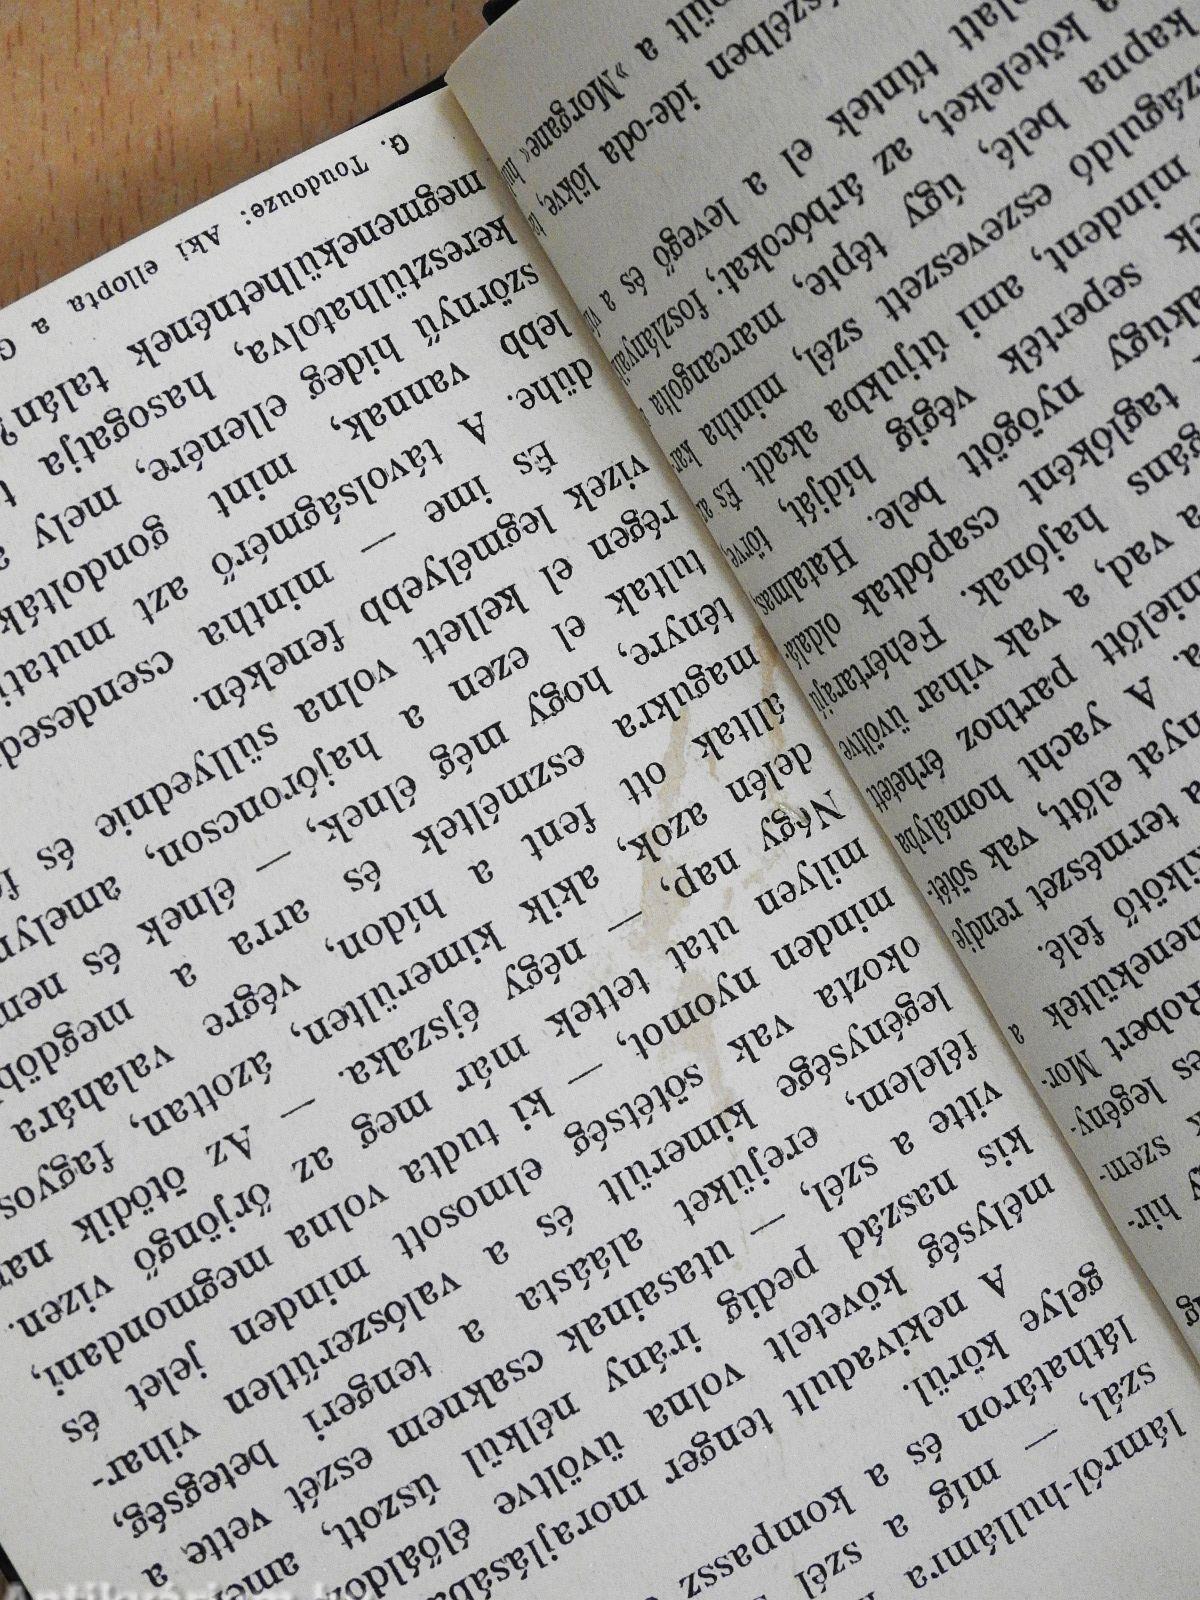 hír-
szem-
legény-
Robert Mor-
menekültek a
kikötő felé.
a természet rendje
előtt, vak sötét-
A yacht homályba
mielőtt parthoz érhetett
a vad, a vak vihar üvöltve
hajónak. Fehértarajú
taglóként csapódtak oldalá-
nyögött bele. Hatalmas,
végig hídját, törve,
seperték
mindent, ami útjukba akadt. És a
száguldó eszeveszett szél, mintha kar
kapna belé, úgy tépte, marcangolta
a köteleket, az árbócokat; foszlányaik
tűntek el a levegő és a
ide-oda lökve,
a »Morgane«
lámról-hullámra
szál, — míg a szél
láthatáron és a kompassz
gelye körül.
A nekivadult tenger morajlásába
mélység követelt volna üvöltve élőáldo
kis naszád pedig irány nélkül úszott, ame
vitte a szél, — utasainak csaknem eszét vette a
félelem, erejüket aláásta a tengeri betegség,
legénysége kimerült és a valószerűtlen vihar-
okozta vak sötétség elmosott minden jelet és
minden nyomot, — ki tudta volna megmondani,
milyen utat tettek már meg az őrjöngő vizen.
Négy nap, — négy éjszaka. — Az ötödik nap
delén azok, akik kimerülten, ázottan, fagyos
álltak ott fent a hídon, végre valahára
magukra eszméltek és arra a megdöb
tényre, hogy még élnek, — élnek és nem
tultak el ezen a hajóroncson, amelyn
régen el kellett volna süllyednie és
vizek legmélyebb fenekén.
És ime — mintha csendesed
dühe. A távolságmérő azt mutatj
lebb vannak, mint gondolták
szörnyű hideg ellenére, mely a
keresztülhatolva, hasogatja t
megmenekülhetnének talán?
G. Toudouze: Aki ellopta a G